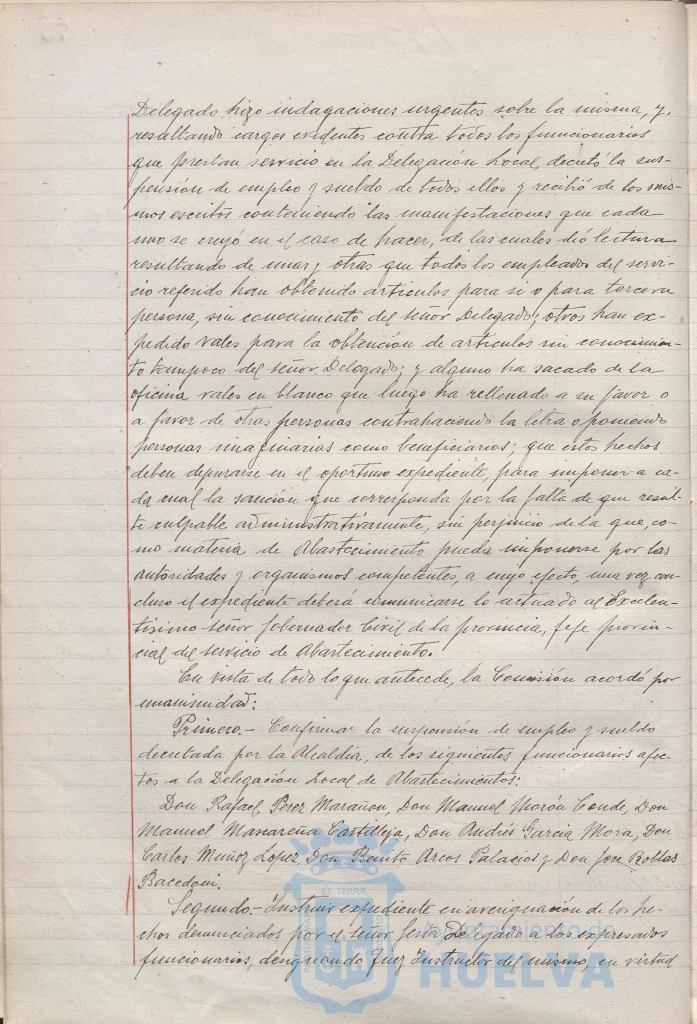 Delegado hizo indagaciones urgentes sobre la misma, y,
resultando cargos evidentes contra todos los funcionarios
que prestan servicio en la Delegación Local, decretó la sus-
pensión de empleo y sueldo de todos ellos y recibió de los mis-
mos escritos conteniendo las manifestaciones que cada
uno se creyó en el caso de hacer, de las cuales dió lectura
resultando de unas y otras que todos los empleados del servi-
cio referido han obtenido artículos para si o para tercera
persona, sin conocimiento del señor Delegado; otros han ex-
pedido vales para la obtención de artículos sin conocimien-
to tampoco del señor Delegado; y alguno ha sacado de la
oficina vales en blanco que luego ha rellenado a su favor o
a favor de otras personas contrahaciendo la letra o poniendo
personas imaginarias como beneficiarios; que estos hechos
deben depurarse en el oportuno expediente, para imponer a ca-
da cual la sanción que corresponda por la falta de que resul-
te culpable administrativamente, sin perjuicio de la que, co-
mo materia de Abastecimiento pueda imponerse por las
autoridades y organismos competentes, a cuyo efecto, una vez con-
cluso el expediente deberá comunicarse lo actuado al Excelen-
tísimo señor Gobernador Civil de la provincia, Jefe provin-
cial del servicio de Abastecimiento.
En vista de todo lo que antecede, la Comisión acordó por
unanimidad:
Primero.- Confirmar la suspensión de empleo y sueldo
decretada por la Alcaldía, de los siguientes funcionarios afec-
tos a la Delegación Local de Abastecimientos:
Don Rafael Perez Marañon, Don Manuel Morón Conde, Don
Manuel Mascareña Castilleja, Don Andrés Garcia Mora, Don
Carlos Muñoz Lopez, Don Benito Arcos Palacios y Don Jose Roblas
Bacedoni.
Segundo.- Instruir expediente en averiguación de los he-
chos denunciados por el señor Delegado a los expresados
funcionarios, designando Juez Instructor del mismo, en virtud
ET TERRÆ
Ayuntamiento de
HUELVA